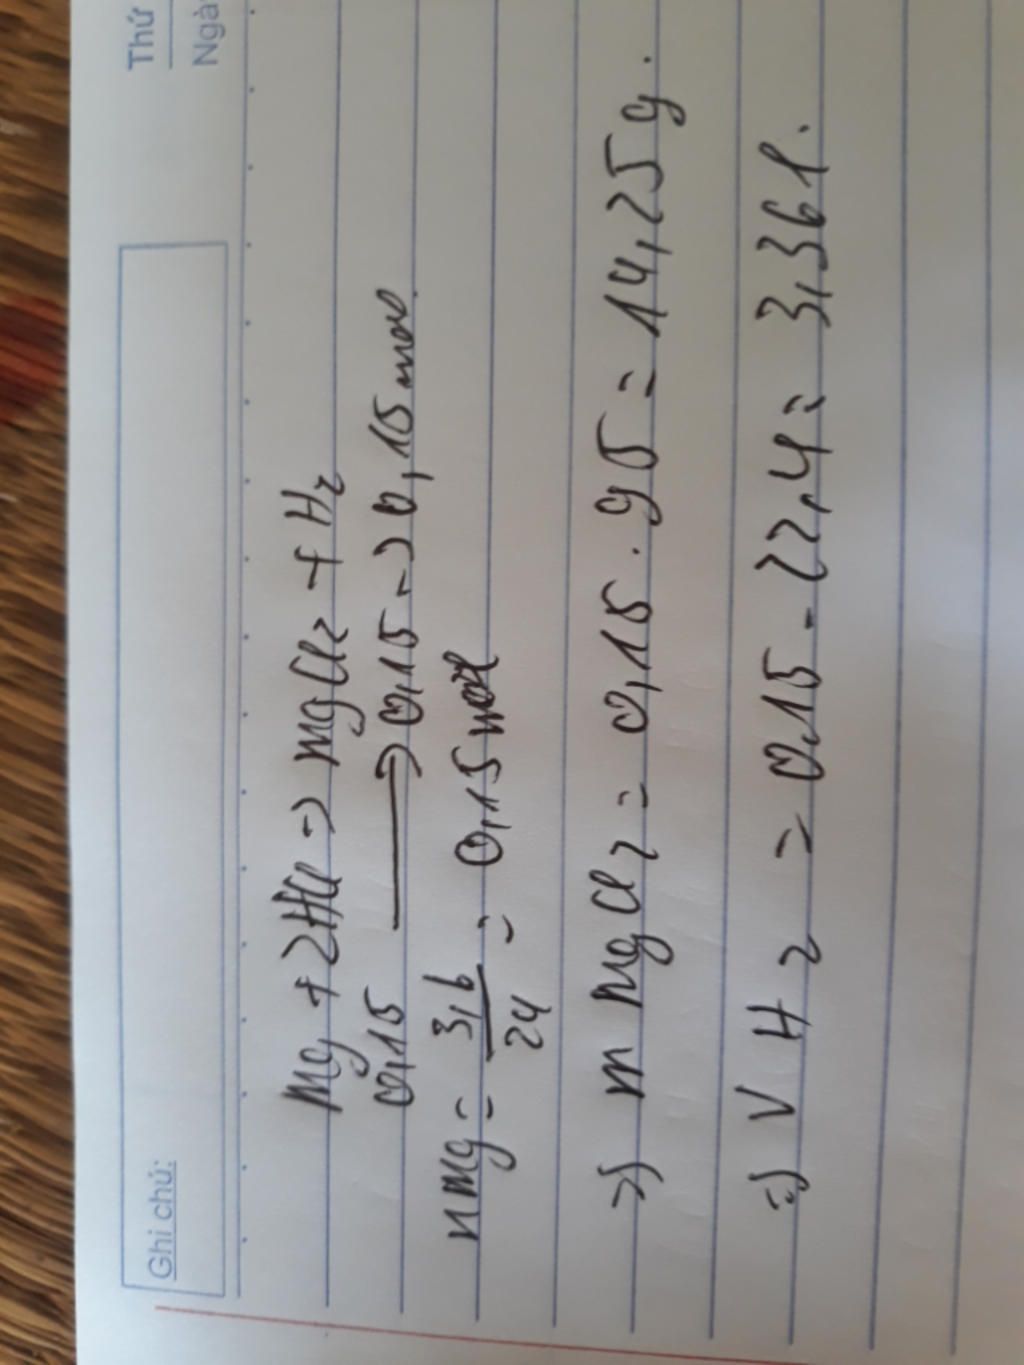 Thứ
Ngà
Ghi chú:
Mg + 2HCl -> MgCl2 + H2
0,15 -> 0,15 -> 0,15 mol
nMg = 3,6/24 = 0,15 mol
=> m MgCl2 = 0,15 . 95 = 14,25g.
=> V H2 = 0,15 . 22,4 = 3,36l.